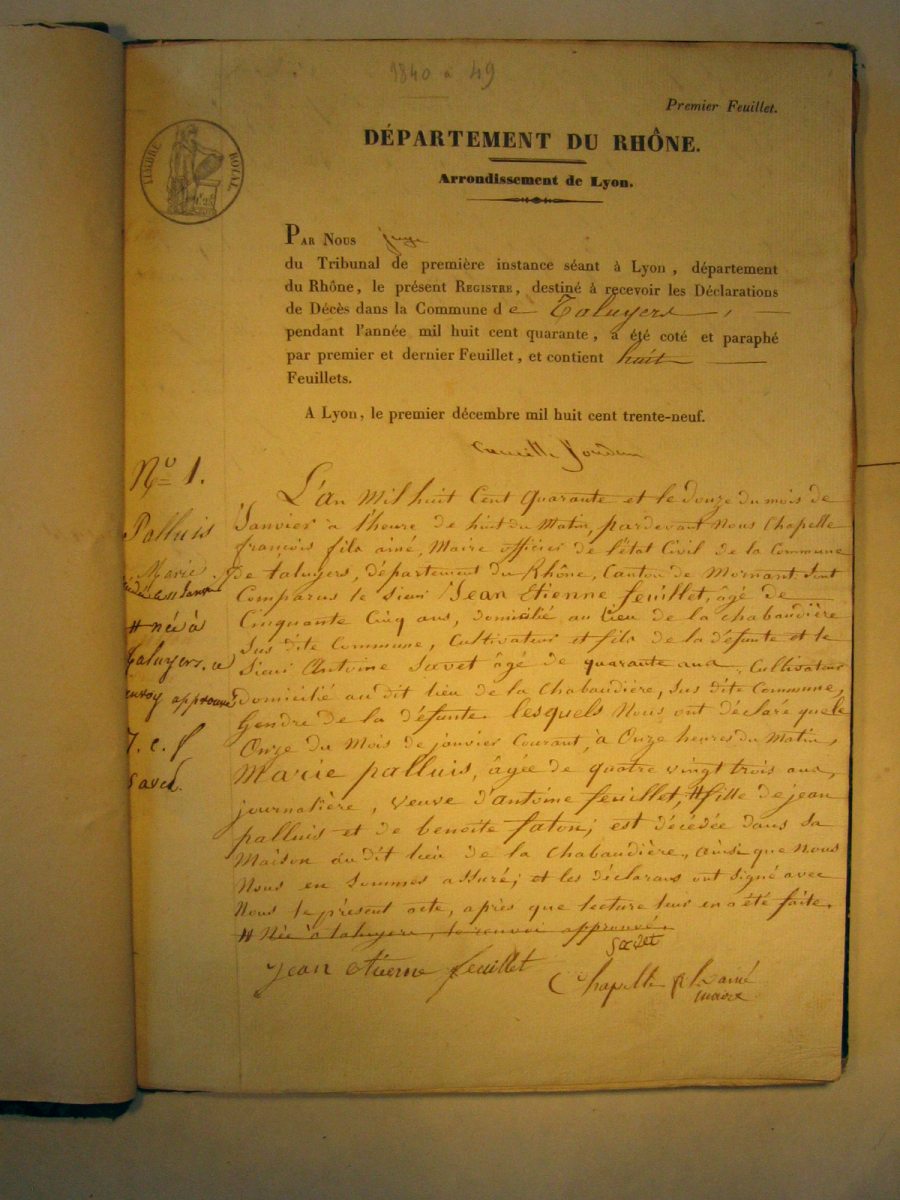 1840 a 49
Premier Feuillet.
DÉPARTEMENT DU RHÔNE.
Arrondissement de Lyon.
TIMBRE ROYAL
PAR NOUS juge
du Tribunal de première instance séant à Lyon, département
du Rhône, le présent REGISTRE, destiné à recevoir les Déclarations
de Décès dans la Commune de Taluyers,
pendant l'année mil huit cent quarante, a été coté et paraphé
par premier et dernier Feuillet, et contient huit
Feuillets.
A Lyon, le premier décembre mil huit cent trente-neuf.
Camille Jordan
No 1.
Palluis
Marie
# née à
Taluyers. le
renvoy approuvé
J. e. f
Savet
L'an Mil huit Cent quarante et le douze du mois de
Janvier à l'heure de huit du Matin, pardevant Nous Chapelle
françois fils ainé, Maire officier de l'état Civil de la Commune
de taluyers, département du Rhône, Canton de Mornant. Sont
Comparus le Sieur Jean Etienne feuillet, âgé de
Cinquante Cinq ans, domicilié au lieu de la chabaudière
Sus dite Commune, Cultivateur et fils de la défunte et le
Sieur Antoine Savet âgé de quarante ans, Cultivateur
domicilié au dit lieu de la Chabaudière, Sus dite Commune,
Gendre de la défunte. lesquels Nous ont déclaré que le
Onze du Mois de janvier Courant, à Onze heures du Matin,
Marie palluis, âgée de quatre vingt trois ans,
journalière, veuve d'antoine feuillet, # fille de jean
palluis et de benoite faton; est décédée dans Sa
Maison au dit lieu de la Chabaudière, ainsi que Nous
Nous en Sommes assuré; et les déclarans ont signé avec
Nous le présent acte, après que lecture leur en a été faite.
# Née à taluyers, le renvoi approuvé.
Savet
Jean etienne feuillet
Chapelle fils ainé
maire